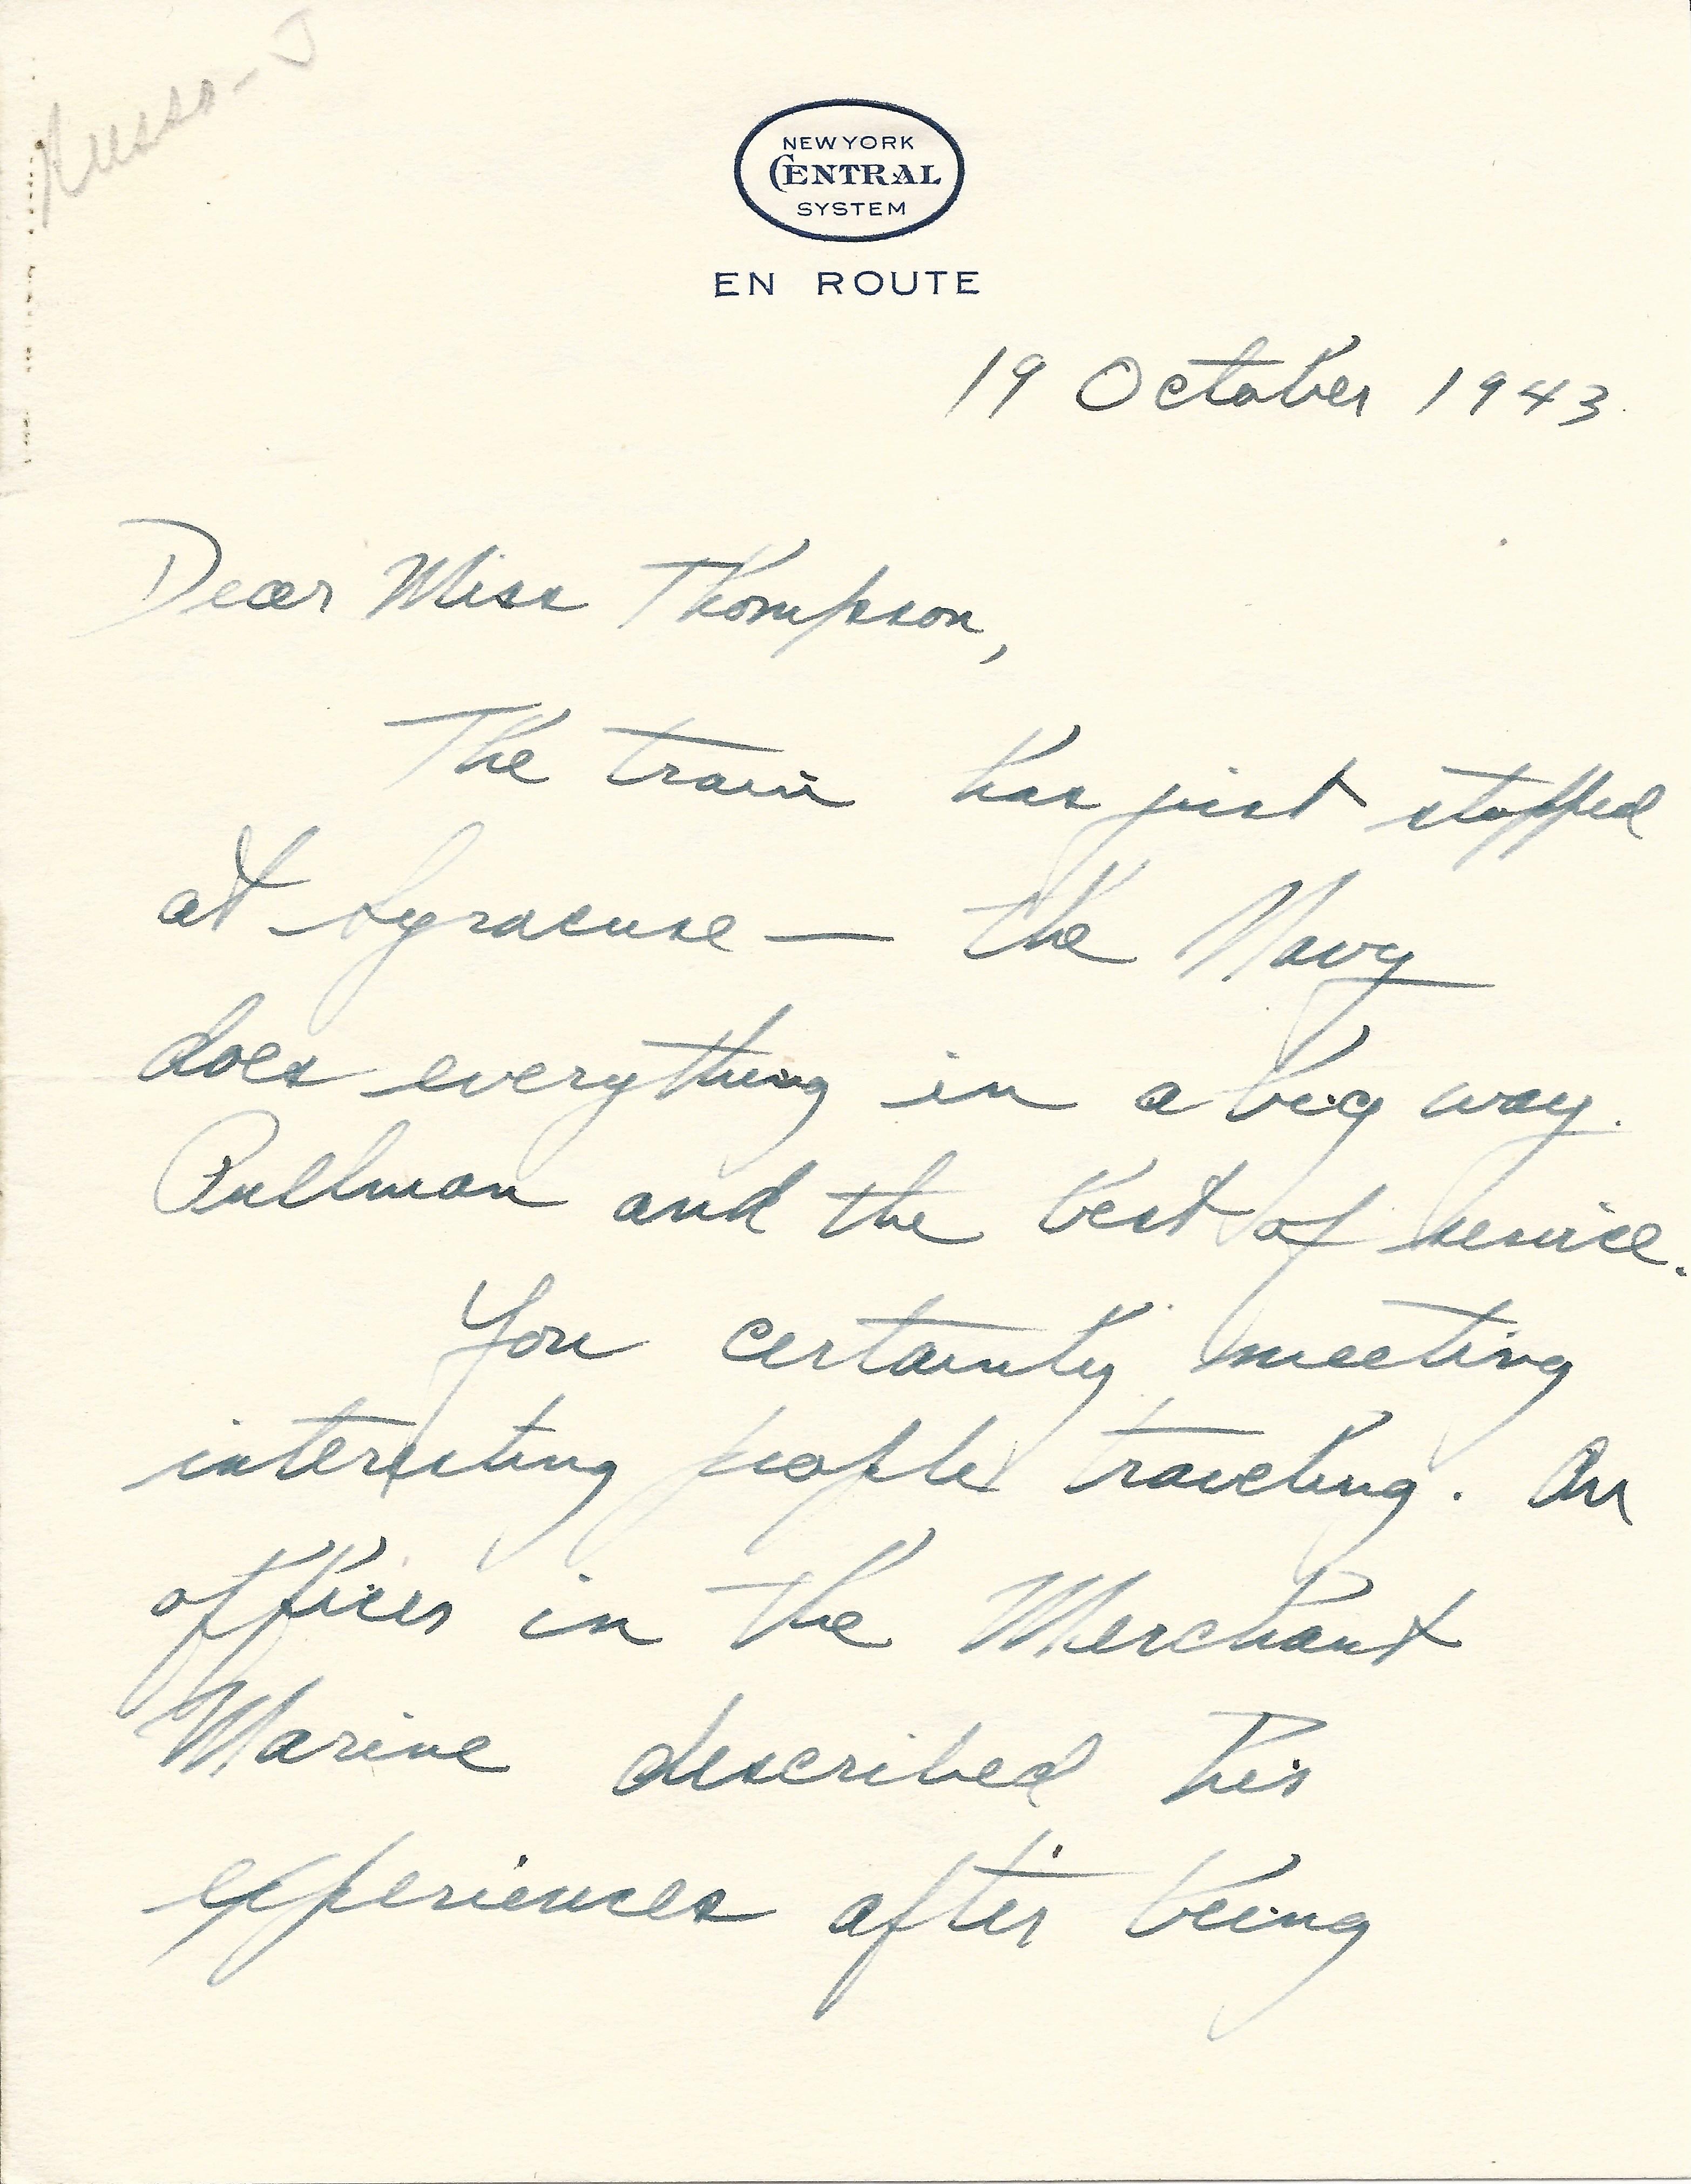 Russo-J
NEW YORK
CENTRAL
SYSTEM
EN ROUTE
19 October 1943.
Dear Miss Thompson,
The train has just stopped
at Syracuse — the Navy
does everything in a big way.
Pullman and the best of service.
You certainly meeting
interesting people traveling. An
officer in the Merchant
Marine described his
experiences after being